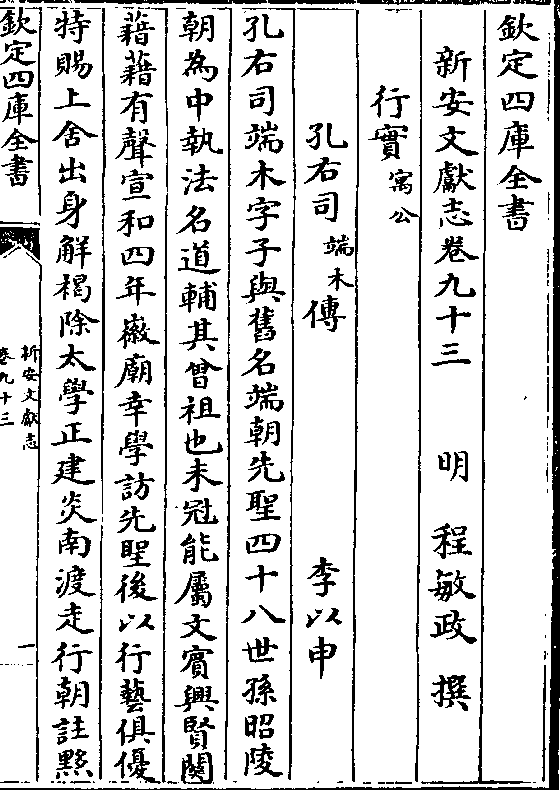 欽定四庫全書
新安文獻志卷九十三　明　程敏政　撰
行實寓公
孔右司端木傳　李以申
孔右司端木字子與舊名端朝先聖四十八世孫昭陵
朝為中執法名道輔其曾祖也未冠能屬文賓興賢關
藉藉有聲宣和四年徽廟幸學訪先聖後以行藝俱優
特賜上舍出身解褐除太學正建炎南渡走行朝註黟
欽定四庫全書
新安文獻志
卷九十三
一